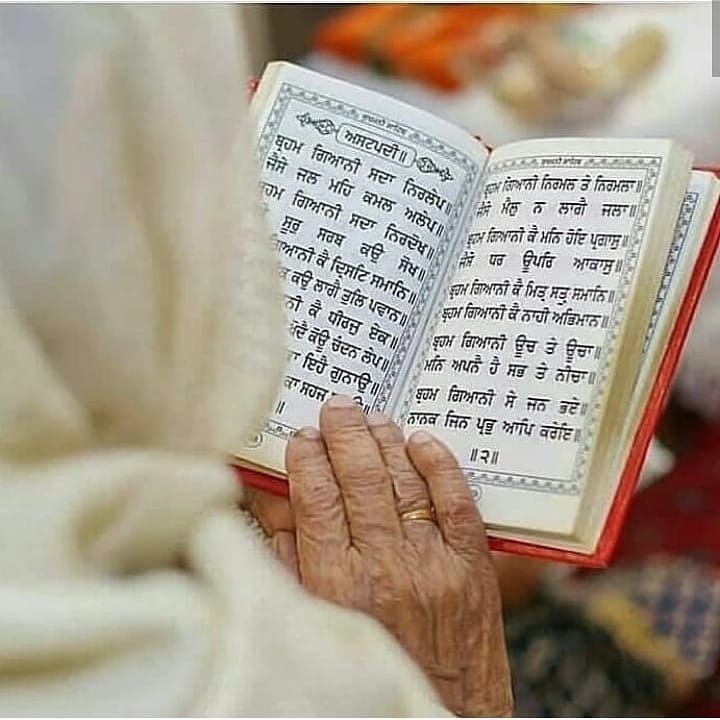 ਸੁਖਮਨੀ ਸਾਹਿਬ
ਅਸਟਪਦੀ॥
ਬ੍ਰਹਮ ਗਿਆਨੀ ਸਦਾ ਨਿਰਲੇਪ॥
ਜੈਸੇ ਜਲ ਮਹਿ ਕਮਲ ਅਲੇਪ॥
ਗਿਆਨੀ ਸਦਾ ਨਿਰਦੋਖ॥
ਸੂਰੁ ਸਰਬ ਕਉ ਸੋਖ॥
ਕੈ ਦ੍ਰਿਸਟਿ ਸਮਾਨਿ॥
ਕਉ ਲਾਗੈ ਤੁਲਿ ਪਵਾਨ॥
ਕੈ ਧੀਰਜੁ ਏਕ॥
ਕੋਊ ਚੰਦਨ ਲੇਪ॥
ਇਹੈ ਗੁਨਾਉ॥
ਕਾ ਸਹਜ
॥
ਸੁਖਮਨੀ ਸਾਹਿਬ
ਬ੍ਰਹਮ ਗਿਆਨੀ ਨਿਰਮਲ ਤੇ ਨਿਰਮਲਾ॥
ਜੈਸੇ ਮੈਲੁ ਨ ਲਾਗੈ ਜਲਾ॥
ਬ੍ਰਹਮ ਗਿਆਨੀ ਕੈ ਮਨਿ ਹੋਇ ਪ੍ਰਗਾਸੁ॥
ਜੈਸੇ ਧਰ ਊਪਰਿ ਆਕਾਸੁ॥
ਬ੍ਰਹਮ ਗਿਆਨੀ ਕੈ ਮਿਤ੍ਰ ਸਤ੍ਰੁ ਸਮਾਨਿ॥
ਬ੍ਰਹਮ ਗਿਆਨੀ ਕੈ ਨਾਹੀ ਅਭਿਮਾਨ॥
ਬ੍ਰਹਮ ਗਿਆਨੀ ਊਚ ਤੇ ਊਚਾ॥
ਮਨਿ ਅਪਨੈ ਹੈ ਸਭ ਤੇ ਨੀਚਾ॥
ਬ੍ਰਹਮ ਗਿਆਨੀ ਸੇ ਜਨ ਭਏ॥
ਨਾਨਕ ਜਿਨ ਪ੍ਰਭੁ ਆਪਿ ਕਰੇਇ॥
॥੨॥